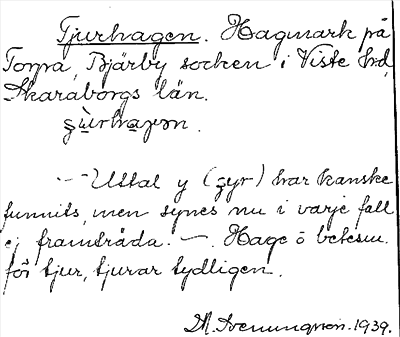 Tjurhagen. Hagmark på
Torpa, Bjärby socken i Viste hd,
Skaraborgs län.
— Uttal y (ʂyr) har kanske
funnits, men synes nu i varje fall
ej framträda. —. Hage o betesm.
för tjur, tjurar tydligen.
1939.